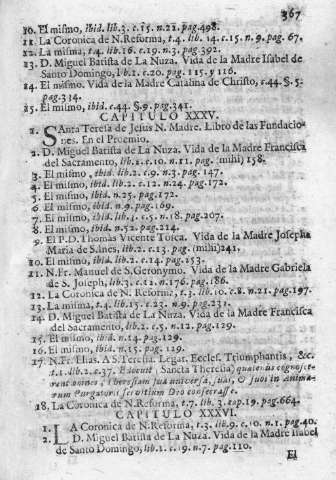 367
10. El mismo, ibid. lib. 2. c. 15. n. 22. pag. 498.
11. La Coronica de N. Reforma, t. 4. lib. 14. c. 15. n. 9. pag. 67.
12. La misma, t. 4. lib. 16. c. 19. n. 3. pag. 392.
13. D. Miguel Batista de La Nuza. Vida de la Madre Isabel de
Santo Domingo, l. 2. c. 20. pag. 115. y 116.
14. El mismo. Vida de la Madre Catalina de Christo, c. 44. §. 5.
pag. 314.
15. El mismo, ibid. c. 44. §. 9. pag. 341.
CAPITULO XXXV.
1. SAnta Teresa de Jesus N. Madre. Libro de las Fundacio-
nes. En el Proemio.
2. D. Miguel Batista de La Nuza. Vida de la Madre Francisca
del Sacramento, lib. 2. c. 10. n. 11. pag. (mihi) 158.
3. El mismo, ibid. lib. 2. c. 9. n. 3. pag. 147.
4. El mismo, ibid. lib. 2. c. 12. n. 24. pag. 172.
5. El mismo, ibid. n. 25. pag. 172.
6. El mismo, ibid. n. 9. pag. 169.
7. El mismo, ibid. lib. 4. c. 5. n. 18. pag. 207.
8. El mismo, ibid. n. 52. pag. 214.
9. El P. D. Thomas Vicente Tosca. Vida de la Madre Josepha
Maria de S. Ines, lib. 2. c. 13. pag. (mihi) 241.
10. El mismo, ibid. lib. 2. c. 14. pag. 253.
11. N. Fr. Manuel de S. Geronymo. Vida de la Madre Gabriela
de S. Joseph, lib. 3. c. 12. n. 176. pag. 186.
12. La Coronica de N. Reforma, t. 3. lib. 10. c. 8. n. 21. pag. 197.
13. La misma, t. 4. lib. 15. c. 23. n. 9. pag. 231.
14. D. Miguel Batista de La Nuza. Vida de la Madre Francisca
del Sacramento, lib. 2. c. 5. n. 12. pag. 129.
15. El mismo, ibid. n. 14. pag. 129.
16. El mismo, ibid. n. 15. pag. 129.
17. N. Fr. Elias. A S. Teresia. Legat. Eccles. Triumphantis, &c.
t. 1. lib. 2. c. 37. Edocuit (Sancta Theresia) quatenus cognosce-
rent omnes, Theresiam sua universa, suas, & suos in Anima-
rum Purgatorij servitium Deo consecrasse.
18. La Coronica de N. Reforma, t. 7. lib. 3. cap. 19. pag. 664.
CAPITULO XXXVI.
1. LA Coronica de N. Reforma, t. 3. lib. 9. c. 10. n. 1. pag. 40.
2. D. Miguel Batista de La Nuza. Vida de la Madre Isabel
de Santo Domingo, lib. 1. c. 19. n. 7. pag. 110.
El